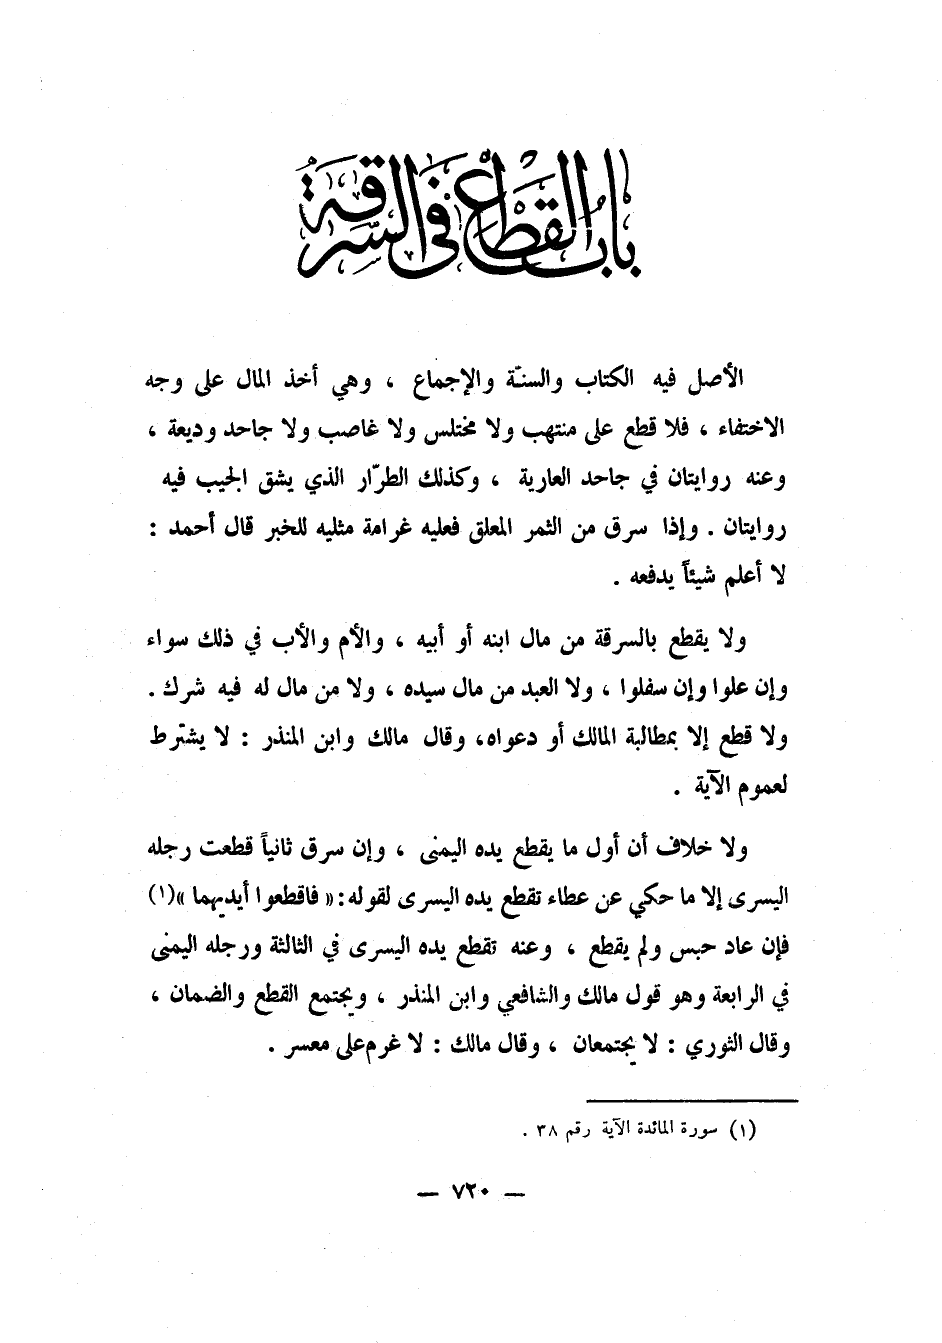 باب القطع في السرقة
الأصل فيه الكتاب والسنّة والإجماع ، وهي أخذ المال على وجه
الاختفاء ، فلا قطع على منتهب ولا مختلس ولا غاصب ولا جاحد وديعة ،
وعنه روايتان في جاحد العارية ، وكذلك الطرّار الذي يشق الجيب فيه
روايتان . وإذا سرق من الثمر المعلق فعليه غرامة مثليه للخبر قال أحمد :
لا أعلم شيئاً يدفعه .
ولا يقطع بالسرقة من مال ابنه أو أبيه ، والأم والأب في ذلك سواء
وإن علوا وإن سفلوا ، ولا العبد من مال سيده ، ولا من مال له فيه شرك .
ولا قطع إلا بمطالبة المالك أو دعواه، وقال مالك وابن المنذر : لا يشترط
لعموم الآية .
ولا خلاف أن أول ما يقطع يده اليمنى ، وإن سرق ثانياً قطعت رجله
اليسرى إلا ما حكي عن عطاء تقطع يده اليسرى لقوله: « فاقطعوا أيديهما »(١)
فإن عاد حبس ولم يقطع ، وعنه تقطع يده اليسرى في الثالثة ورجله اليمنى
في الرابعة وهو قول مالك والشافعي وابن المنذر ، ويجتمع القطع والضمان ،
وقال الثوري : لا يجتمعان ، وقال مالك : لا غرم على معسر .
(١) سورة المائدة الآية رقم ٣٨ .
— ٧٢٠ —